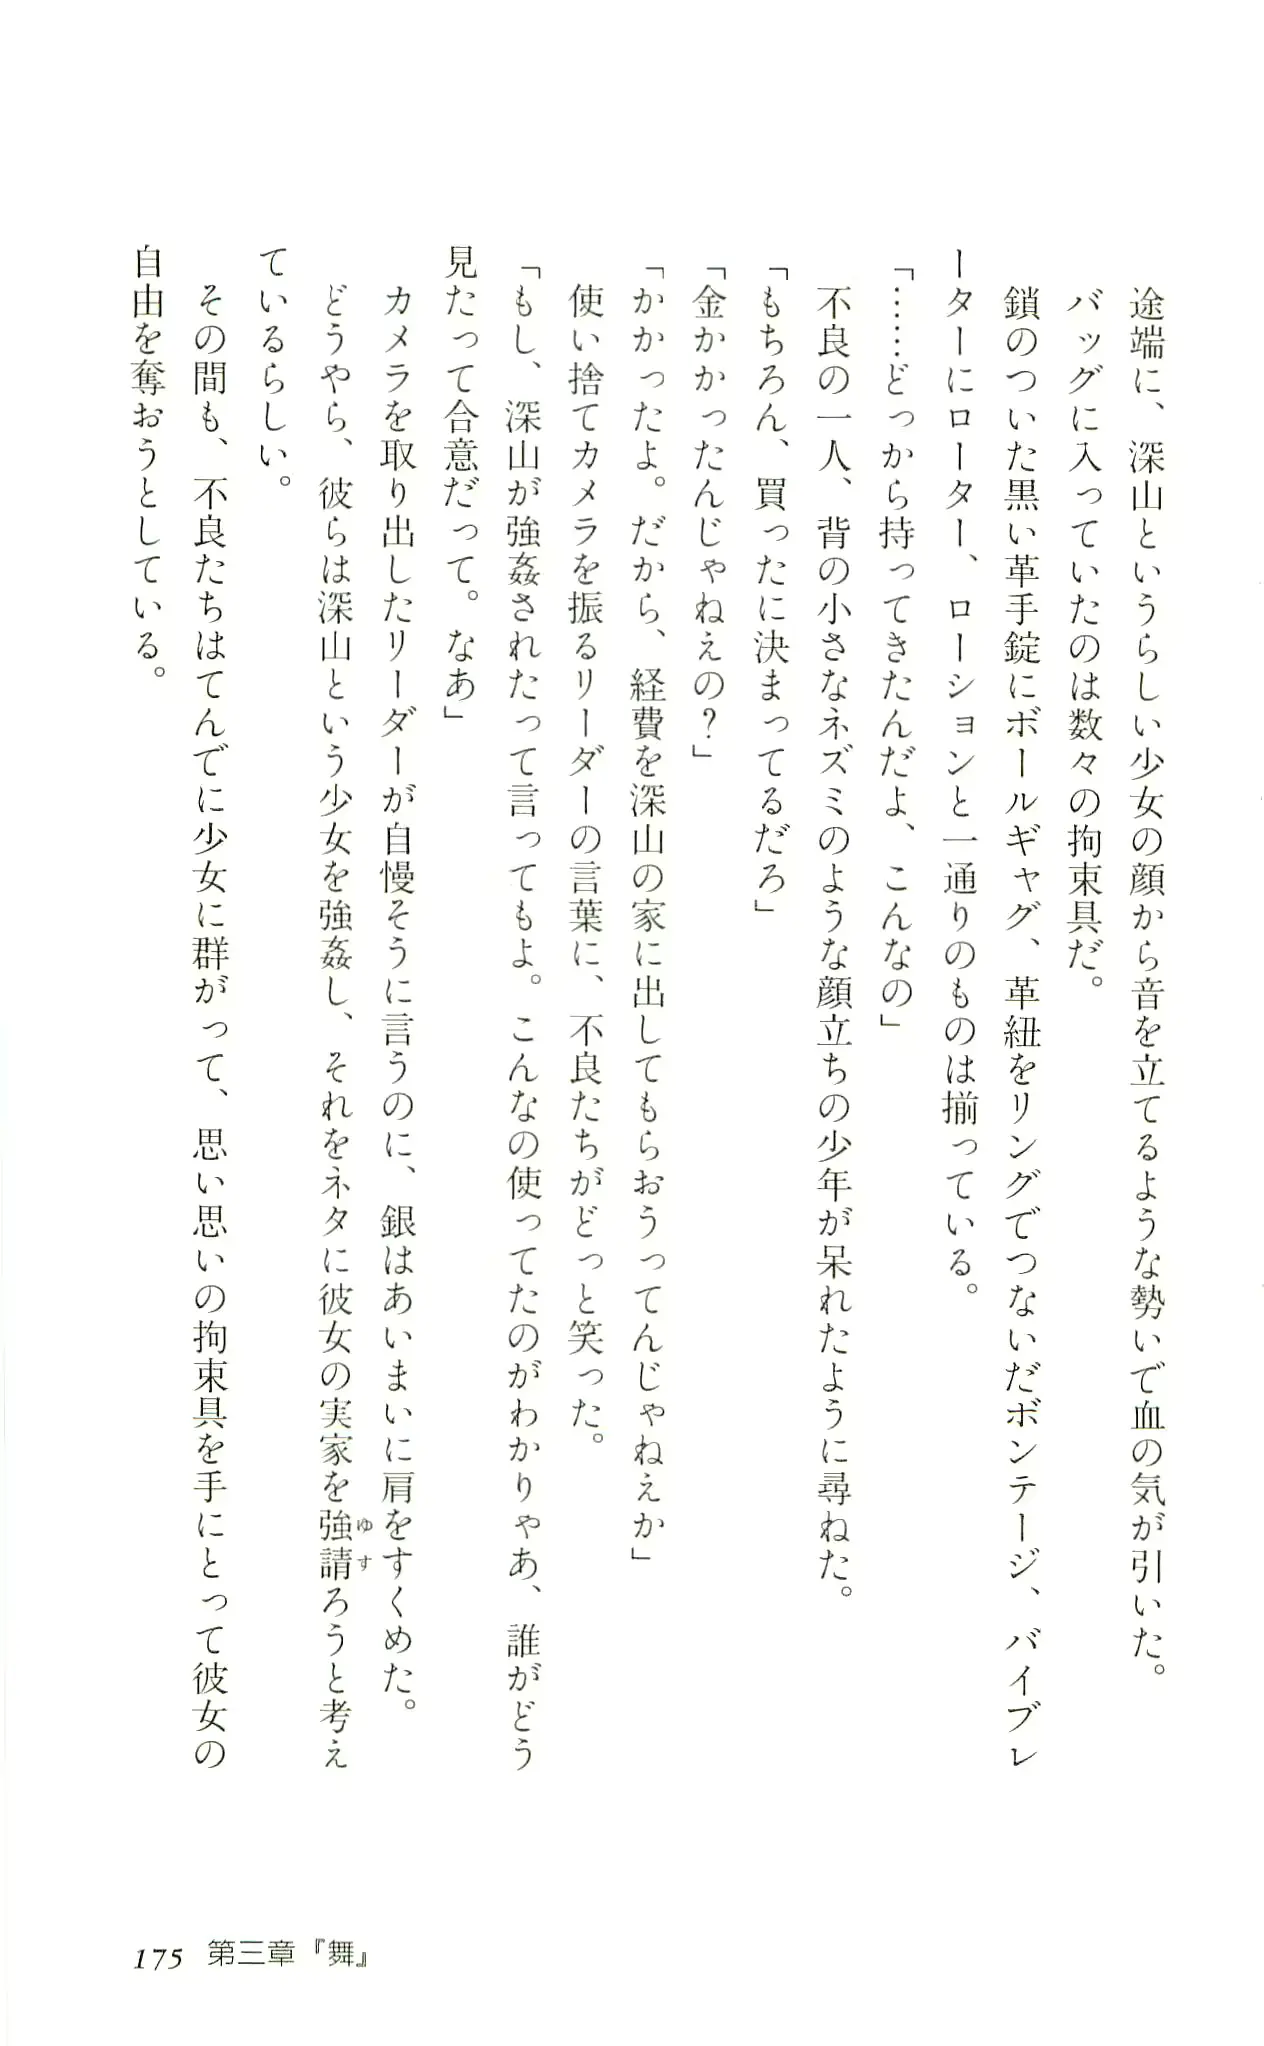 途端に、深山というらしい少女の顔から音を立てるような勢いで血の気が引いた。
バッグに入っていたのは数々の拘束具だ。
鎖のついた黒い革手錠にボールギャグ、革紐をリングでつないだボンテージ、バイブレ
ーターにローター、ローションと一通りのものは揃っている。
「……どっから持ってきたんだよ、こんなの」
不良の一人、背の小さなネズミのような顔立ちの少年が呆れたように尋ねた。
「もちろん、買ったに決まってるだろ」
「金かかったんじゃねえの？」
「かかったよ。だから、経費を深山の家に出してもらおうってんじゃねえか」
使い捨てカメラを振るリーダーの言葉に、不良たちがどっと笑った。
「もし、深山が強姦されたって言ってもよ。こんなの使ってたのがわかりゃあ、誰がどう
見たって合意だって。なあ」
カメラを取り出したリーダーが自慢そうに言うのに、銀はあいまいに肩をすくめた。
どうやら、彼らは深山という少女を強姦し、それをネタに彼女の実家を強請ろうと考え
ゆす
ているらしい。
その間も、不良たちはてんでに少女に群がって、思い思いの拘束具を手にとって彼女の
自由を奪おうとしている。
175 第三章『舞』